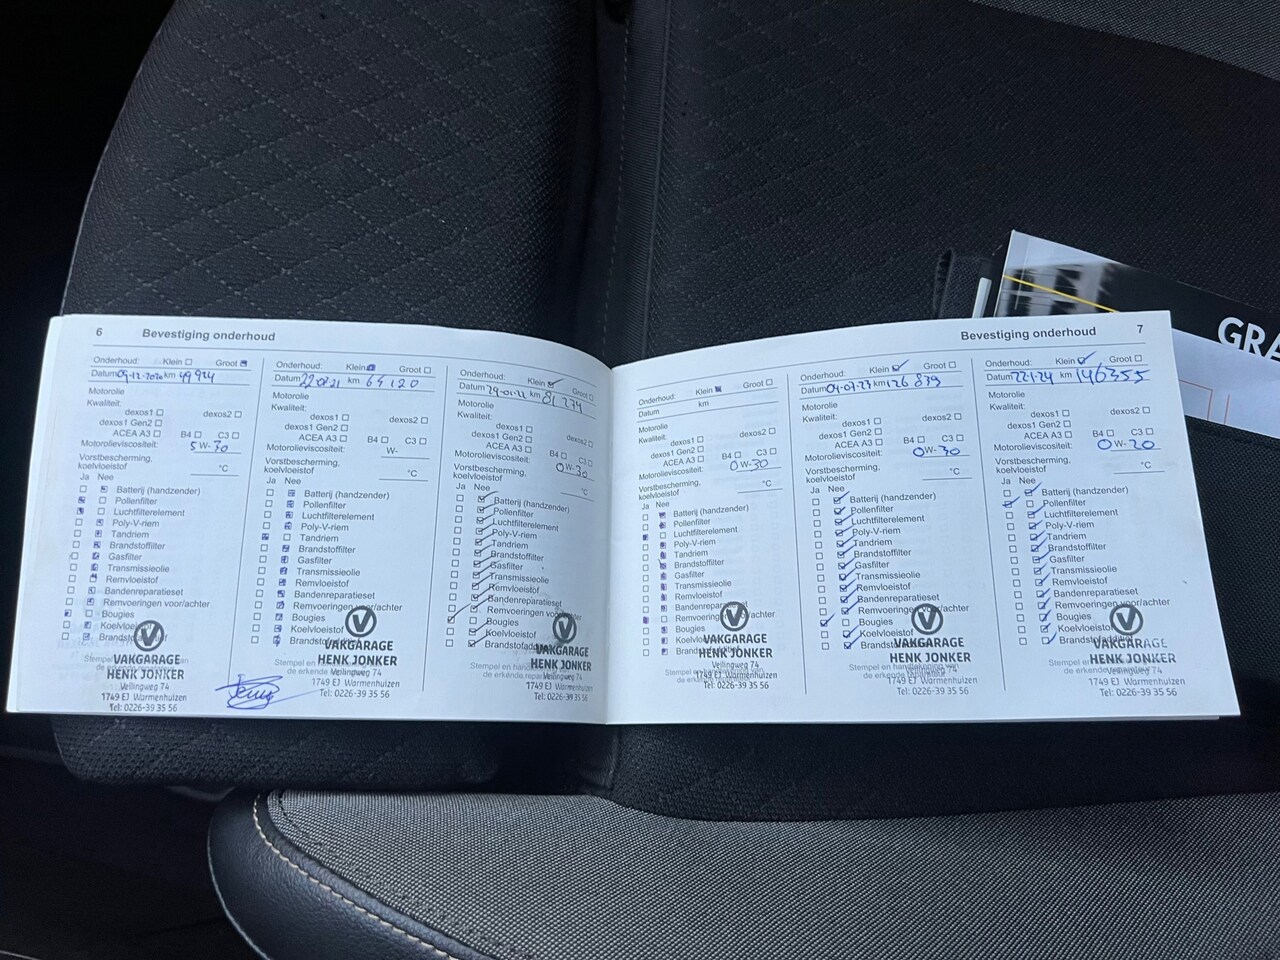 6 Bevestiging onderhoud
Onderhoud: Klein Groot
Datum 09-12-2020 km 49924
Motorolie
Kwaliteit:
dexos1 dexos2
dexos1 Gen2
ACEA A3 B4 C3
Motorolieviscositeit: 5 W-30
Vorstbescherming,
koelvloeistof °C
Ja Nee
Batterij (handzender)
Pollenfilter
Luchtfilterelement
Poly-V-riem
Tandriem
Brandstoffilter
Gasfilter
Transmissieolie
Remvloeistof
Bandenreparatieset
Remvoeringen voor/achter
Bougies
Koelvloeistof
VAKGARAGE
HENK JONKER
Veilingweg 74
1749 EJ Warmenhuizen
Tel: 0226-39 35 56
Onderhoud: Klein Groot
Datum 22-01-21 km 64120
Motorolie
Kwaliteit:
dexos1 dexos2
dexos1 Gen2
ACEA A3 B4 C3
Motorolieviscositeit: W-
Vorstbescherming,
koelvloeistof °C
Ja Nee
Batterij (handzender)
Pollenfilter
Luchtfilterelement
Poly-V-riem
Tandriem
Brandstoffilter
Gasfilter
Transmissieolie
Remvloeistof
Bandenreparatieset
Remvoeringen voor/achter
Bougies
Koelvloeistof
VAKGARAGE
HENK JONKER
Veilingweg 74
1749 EJ Warmenhuizen
Tel: 0226-39 35 56
Onderhoud: Klein Groot
Datum 24-01-22 km 81274
Motorolie
Kwaliteit:
dexos1 dexos2
dexos1 Gen2
ACEA A3 B4 C3
Motorolieviscositeit: 0 W-30
Vorstbescherming,
koelvloeistof °C
Ja Nee
Batterij (handzender)
Pollenfilter
Luchtfilterelement
Poly-V-riem
Tandriem
Brandstoffilter
Gasfilter
Transmissieolie
Remvloeistof
Bandenreparatieset
Remvoeringen
Bougies
Koelvloeistof
VAKGARAGE
HENK JONKER
Veilingweg 74
1749 EJ Warmenhuizen
Tel: 0226-39 35 56
Bevestiging onderhoud 7
Onderhoud: Klein Groot
Datum km
Motorolie
Kwaliteit:
dexos1 dexos2
dexos1 Gen2
ACEA A3 B4 C3
Motorolieviscositeit: 0 W-30
Vorstbescherming,
koelvloeistof °C
Ja Nee
Batterij (handzender)
Pollenfilter
Luchtfilterelement
Poly-V-riem
Tandriem
Brandstoffilter
Gasfilter
Transmissieolie
Remvloeistof
Bandenreparatieset
Remvoeringen voor/achter
Bougies
Koelvloeistof
VAKGARAGE
HENK JONKER
Veilingweg 74
1749 EJ Warmenhuizen
Tel: 0226-39 35 56
Onderhoud: Klein Groot
Datum 04-07-23 km 126839
Motorolie
Kwaliteit:
dexos1 dexos2
dexos1 Gen2
ACEA A3 B4 C3
Motorolieviscositeit: 0 W-30
Vorstbescherming,
koelvloeistof °C
Ja Nee
Batterij (handzender)
Pollenfilter
Luchtfilterelement
Poly-V-riem
Tandriem
Brandstoffilter
Gasfilter
Transmissieolie
Remvloeistof
Bandenreparatieset
Remvoeringen voor/achter
Bougies
Koelvloeistof
VAKGARAGE
HENK JONKER
Veilingweg 74
1749 EJ Warmenhuizen
Tel: 0226-39 35 56
Onderhoud: Klein Groot
Datum 22-1-24 km 146355
Motorolie
Kwaliteit:
dexos1 dexos2
dexos1 Gen2
ACEA A3 B4 C3
Motorolieviscositeit: 0 W-20
Vorstbescherming,
koelvloeistof °C
Ja Nee
Batterij (handzender)
Pollenfilter
Luchtfilterelement
Poly-V-riem
Tandriem
Brandstoffilter
Gasfilter
Transmissieolie
Remvloeistof
Bandenreparatieset
Remvoeringen voor/achter
Bougies
Koelvloeistof
Brandstofadditief
VAKGARAGE
HENK JONKER
Veilingweg 74
1749 EJ Warmenhuizen
Tel: 0226-39 35 56
GRA